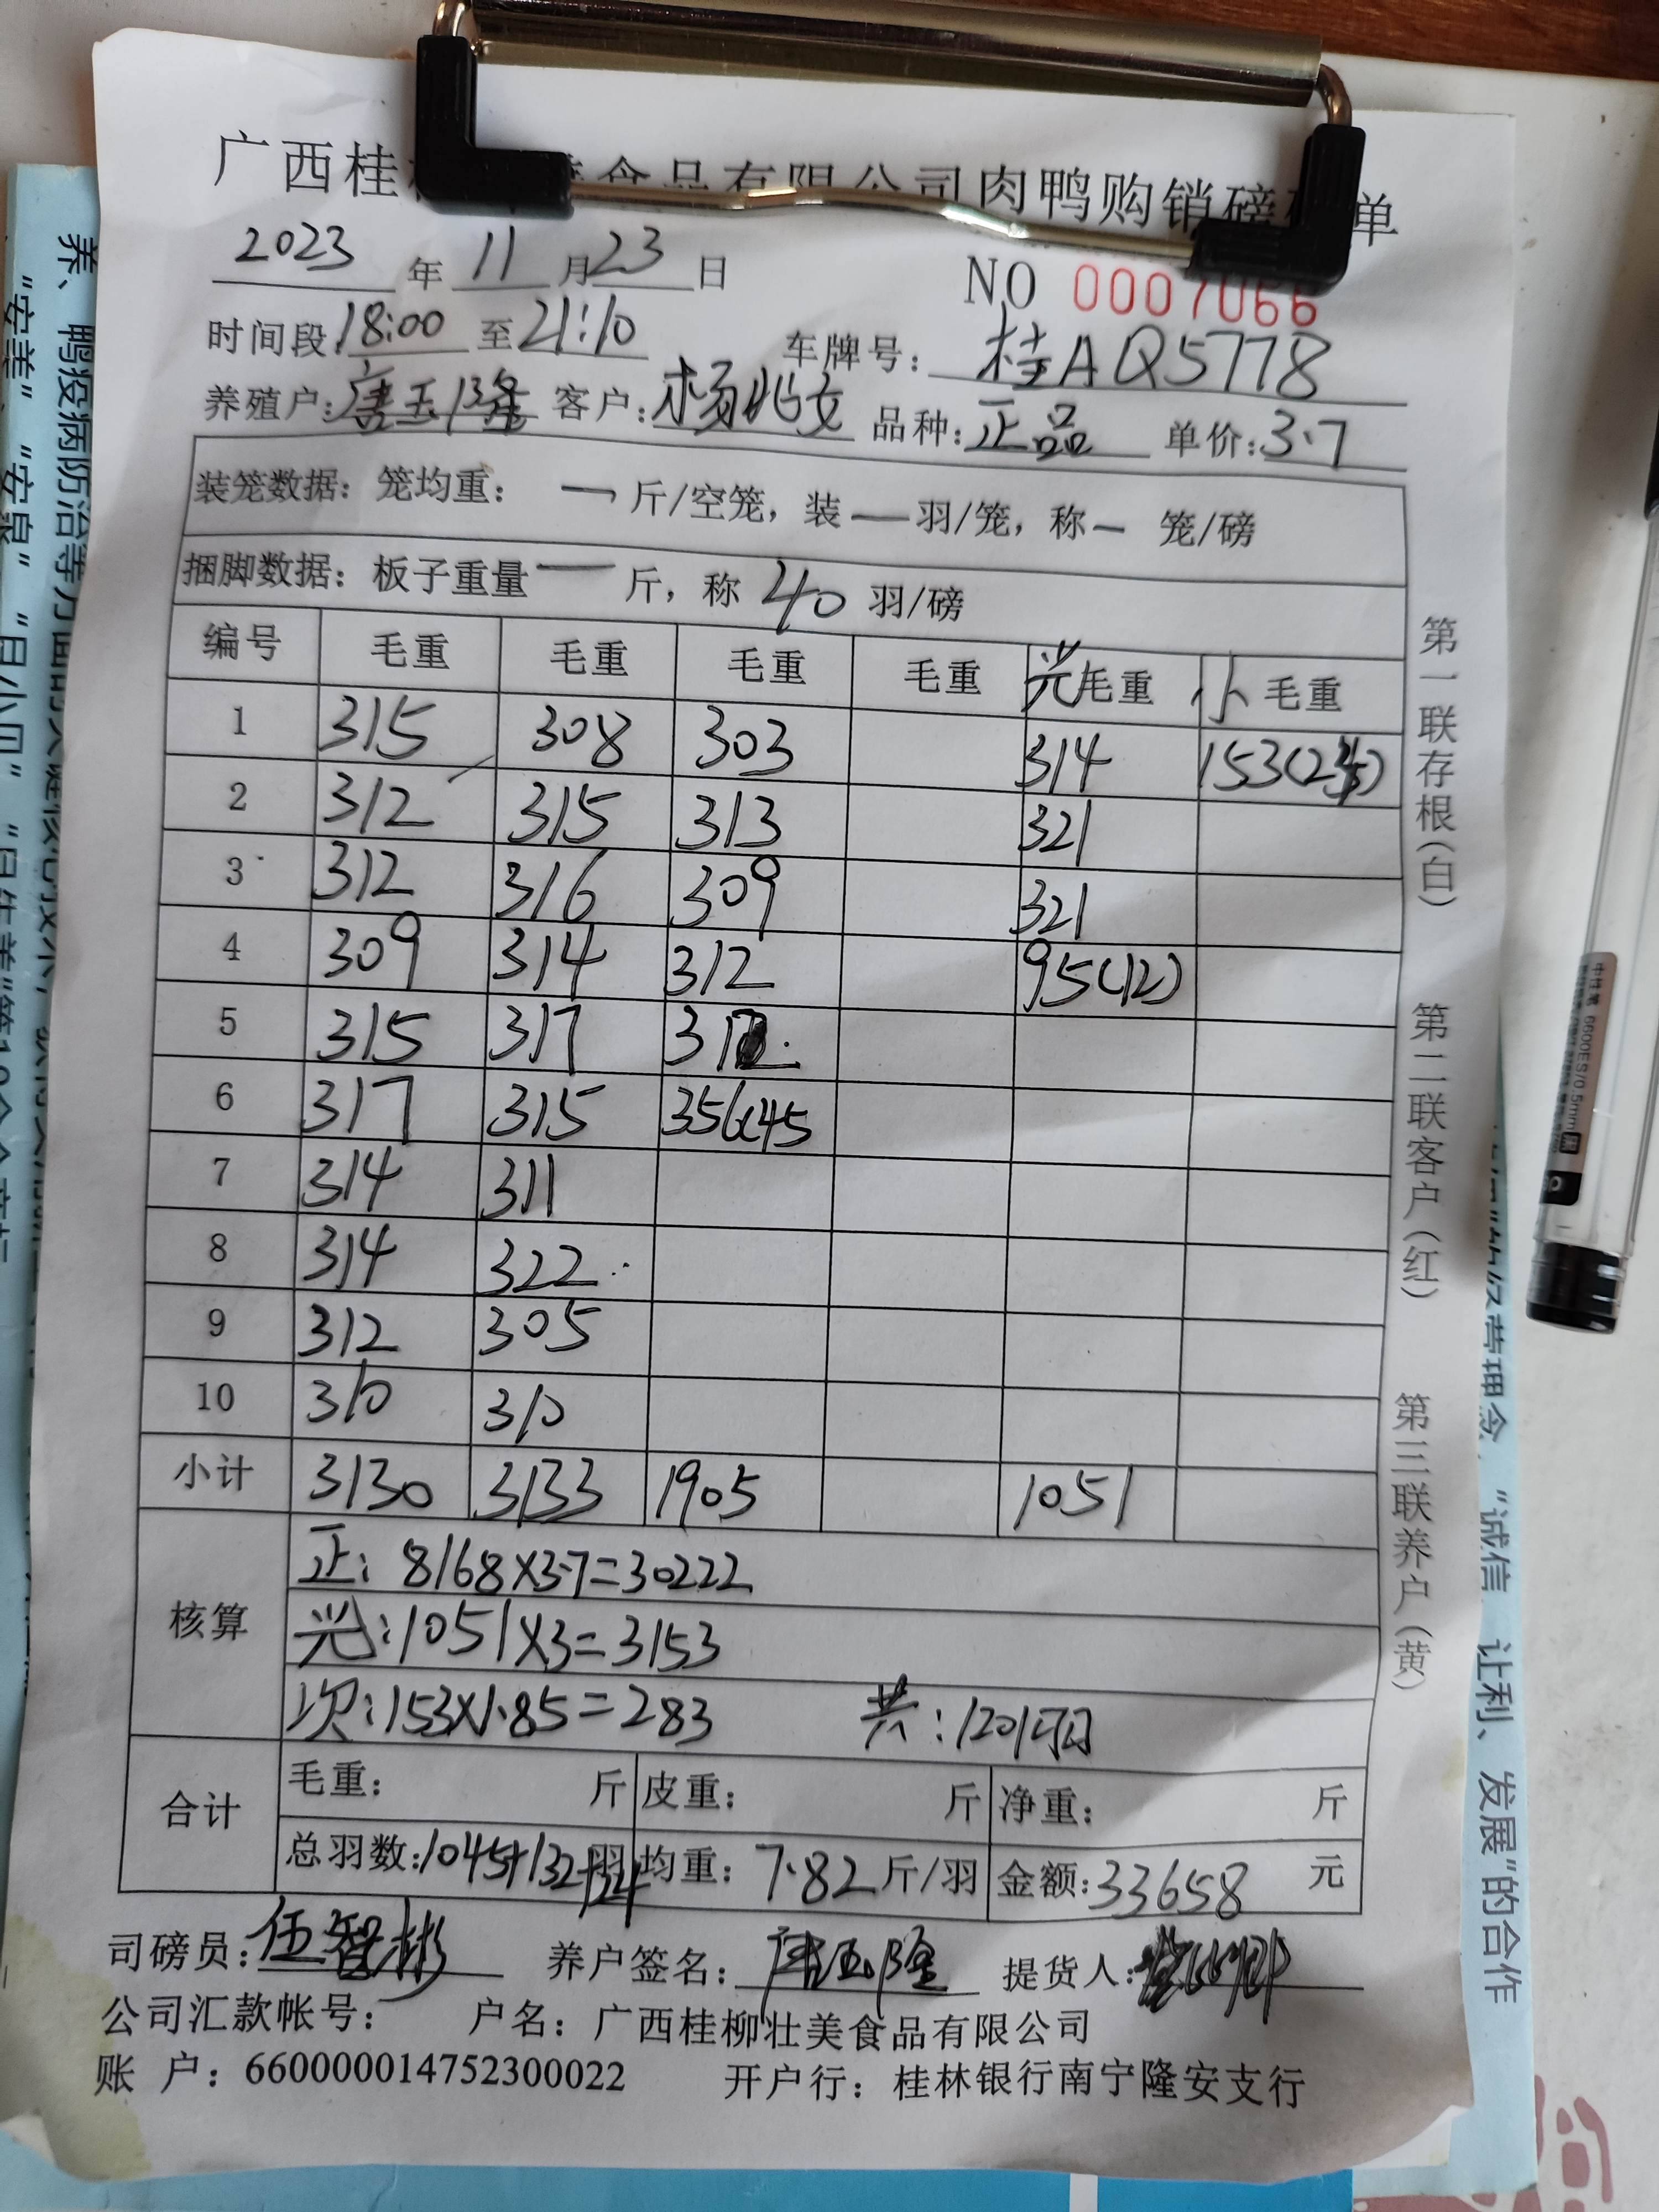 广西桂 食品有限公司肉鸭购销磅 单
2023 年 11 月 23 日
NO 0007066
时间段 18:00 至 21:10 车牌号: 桂AQ5778
养殖户: 唐玉隆 客户: 杨兆文 品种: 正品 单价: 3.7
装笼数据: 笼均重: — 斤/空笼, 装 — 羽/笼, 称 — 笼/磅
捆脚数据: 板子重量 — 斤, 称 40 羽/磅
编号 毛重 毛重 毛重 毛重 光毛重 小毛重
1 315 308 303 314 153(24)
2 312 315 313 321
3 312 316 309 321
4 309 314 312 95(12)
5 315 317 312
6 317 315 356(45
7 314 311
8 314 322
9 312 305
10 310 310
小计 3130 3133 1905 1051
核算
正: 8168×3.7=30222
光:1051×3=3153
次:153×1.85=283 共:1201羽
合计
毛重: 斤 皮重: 斤 净重: 斤
总羽数:1045+132+24羽 均重: 7.82斤/羽 金额:33658 元
司磅员: 伍智彬 养户签名: 唐玉隆 提货人:
公司汇款帐号: 户名: 广西桂柳壮美食品有限公司
账 户: 660000014752300022 开户行: 桂林银行南宁隆安支行
第一联存根(白)
第二联客户(红)
第三联养户(黄)
养、鸭疫病防治等方面
"安美"、"安
"诚信
让利、发展"的合作
中性笔 6600ES/0.5mm